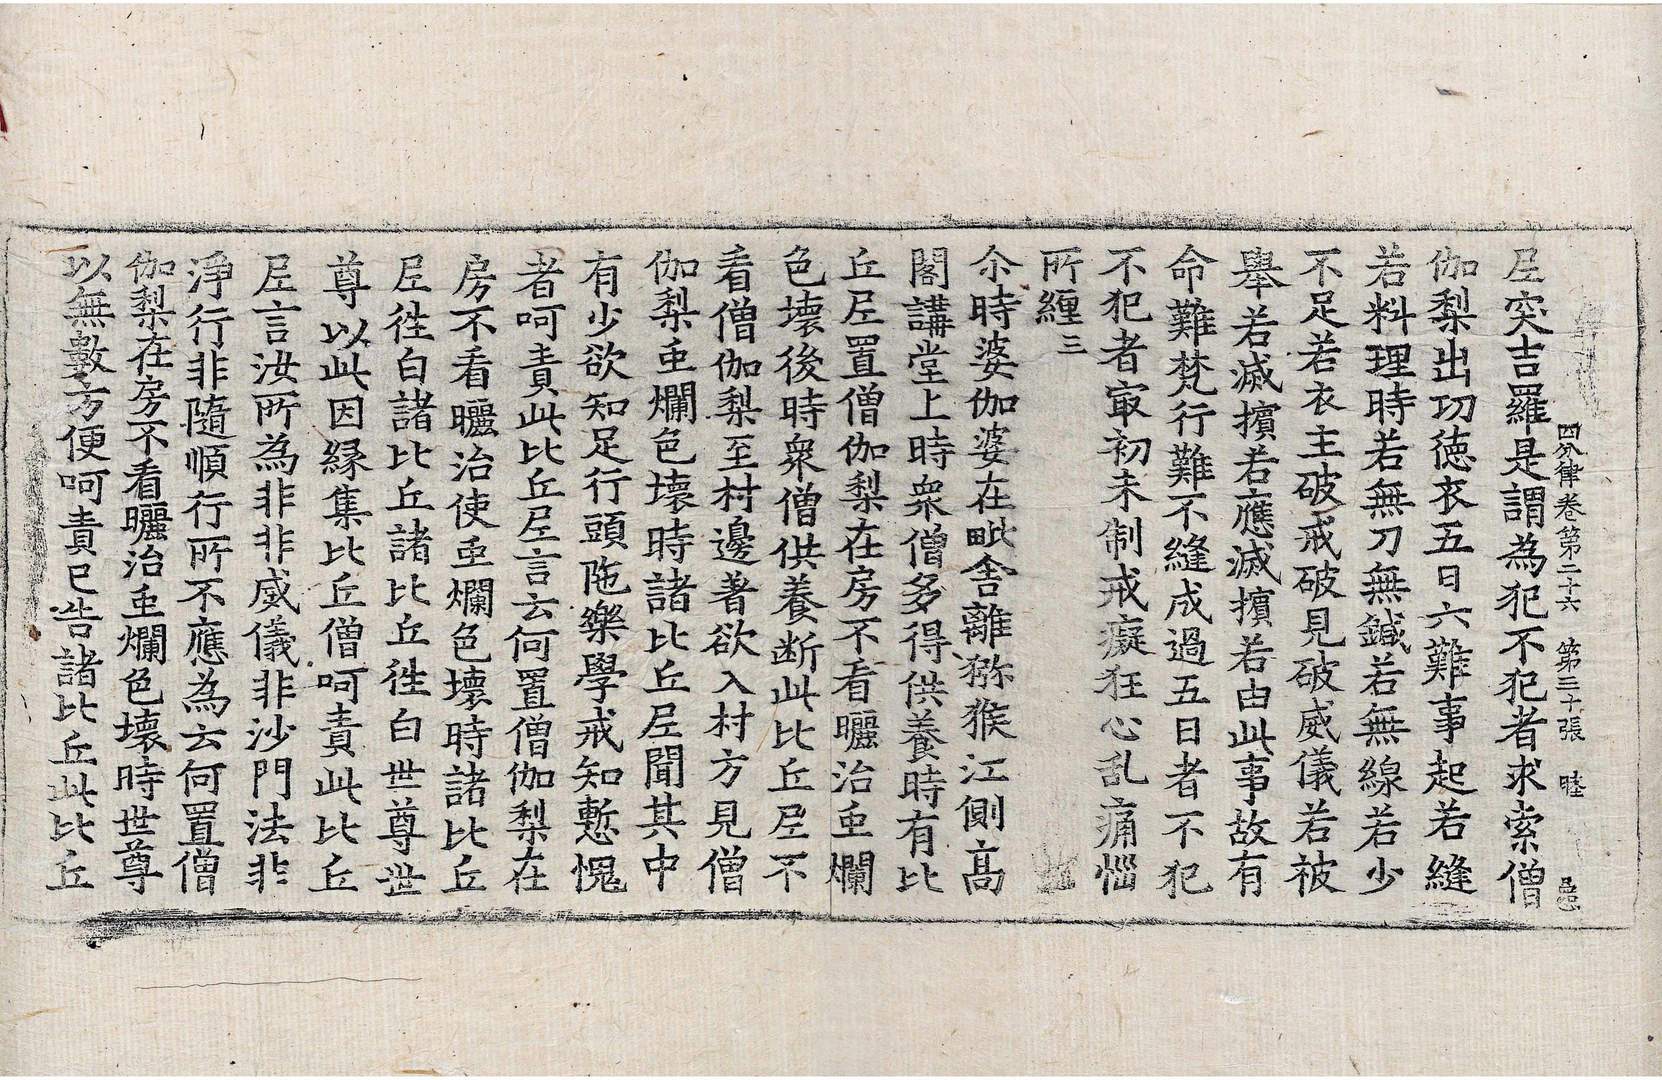 四分律卷第二十六　第三十張　睦
尼突吉羅是謂為犯不犯者求索僧
伽梨出功德衣五日六難事起若縫
若料理時若無刀無鍼若無線若少
不足若衣主破戒破見破威儀若被
舉若滅擯若應滅擯若由此事故有
命難梵行難不縫成過五日者不犯
不犯者㝡初未制戒癡狂心乱痛惱
所纏三
尒時婆伽婆在毗舍離獼猴江側高
閣講堂上時衆僧多得供養時有比
丘尼置僧伽梨在房不看曬治虫爛
色壞後時衆僧供養断此比丘尼不
看僧伽梨至村邊著欲入村方見僧
伽梨虫爛色壞時諸比丘尼聞其中
有少欲知足行頭陁樂學戒知慙愧
者呵責此比丘尼言云何置僧伽梨在
房不看曬治使虫爛色壞時諸比丘
尼徃白諸比丘諸比丘徃白世尊世
尊以此因緣集比丘僧呵責此比丘
尼言汝所為非非威儀非沙門法非
淨行非隨順行所不應為云何置僧
伽梨在房不看曬治虫爛色壞時世尊
以無數方便呵責已告諸比丘此比丘